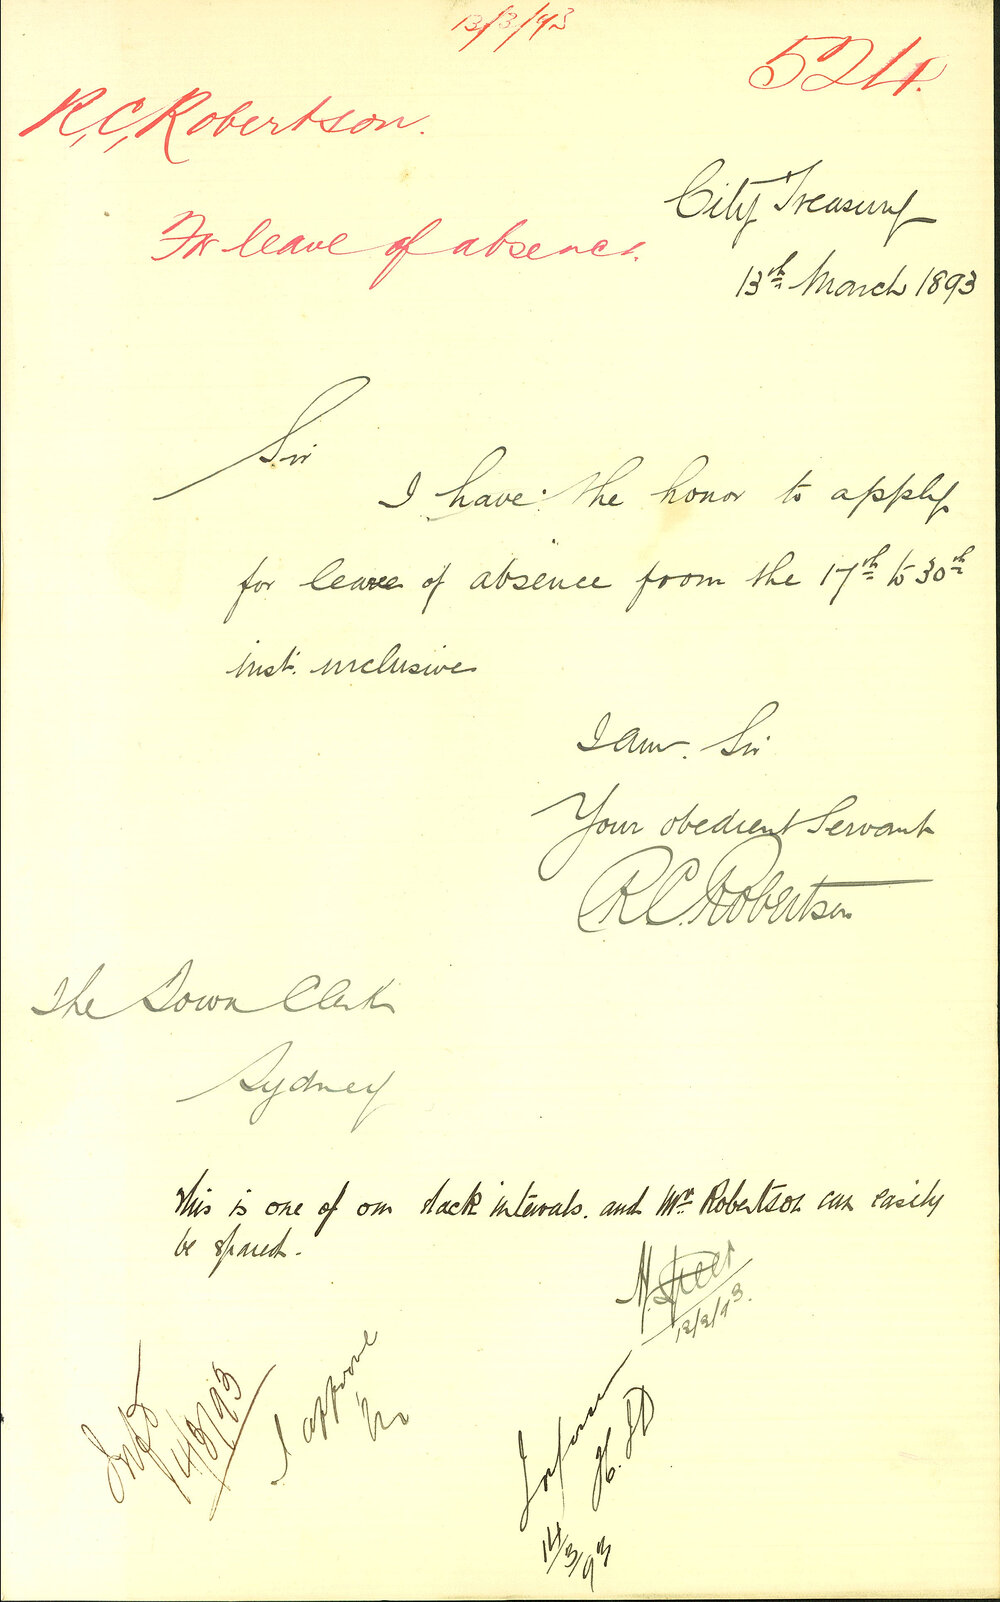 13/3/93
524.
R,C,Robertson.
City Treasury
For leave of absence.
13th March 1893
Sir
I have the honor to apply
for leave of absence from the 17th to 30th
inst. inclusive
I am. Sir
Your obedient Servant
R.C. Robertson
The Town Clerk
Sydney
This is one of our slack intervals. and Mr. Robertson can easily
be spared.
13/3/93.
I approve
14/3/93
Inform
14/3/93